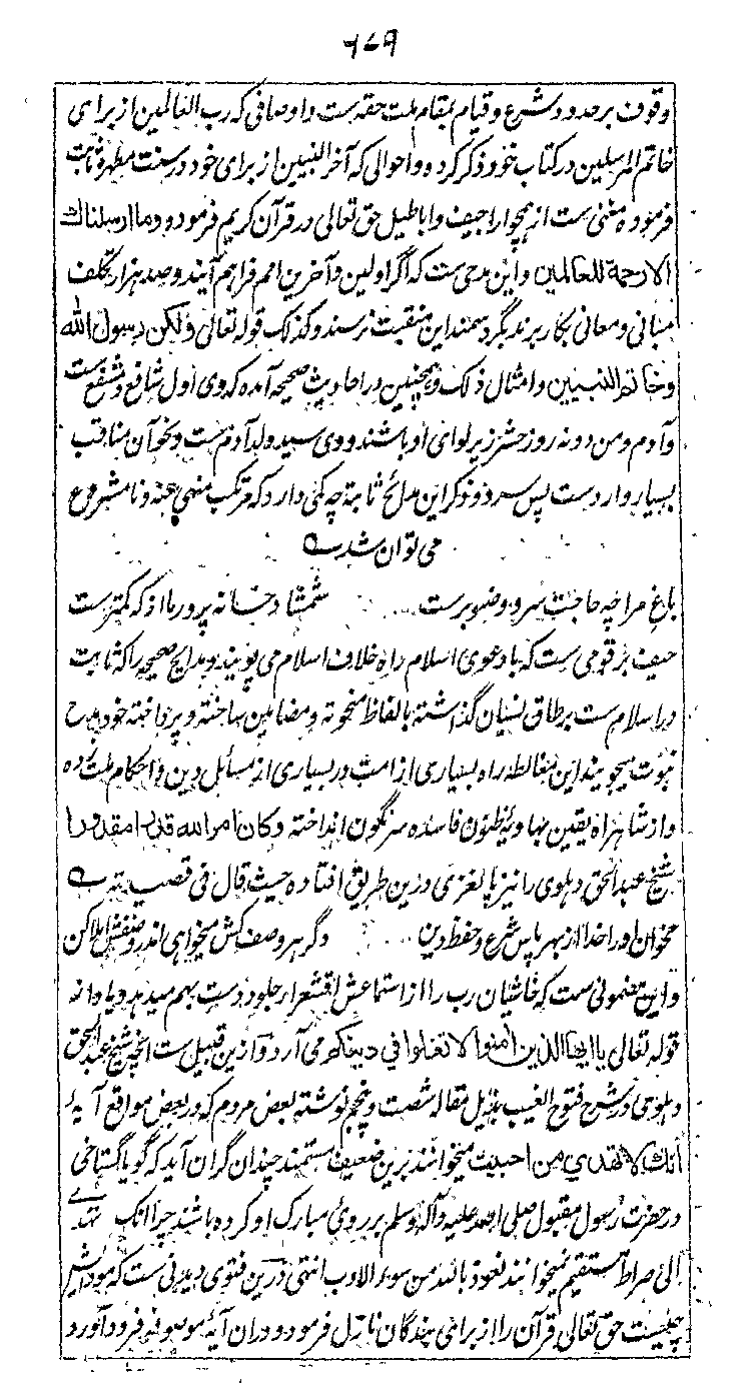 ۷۶۹
وقوف بر حدود شرع و قیام بمقام ملت حقه ست و اوصافی که رب العالمین از برای
خاتم المرسلین در کتاب خود ذکر کرده و احوالی که آخر النبیین از برای خود در سنت مطهره ثابت
فرموده مغنی ست از همچو اراجیف و اباطیل حق تعالی در قرآن کریم فرموده وما ارسلناك
الا رحمة للعالمین و این مدحی ست که اگر اولین و آخرین امم فراهم آیند و صد هزار تکلف
مبانی و معانی بکار برند بگرد سمند این منقبت نرسند و کذلک قوله تعالی ولکن رسول الله
وخاتم النبیین و امثال ذلک و همچنین در احادیث صحیحه آمده که وی اول شافع و مشفع ست
و آدم و من دونه روز حشر زیر لوای او باشند و وی سید ولد آدم ست و نحو آن مناقب
بسیار وارد ست پس سرد و ذکر این مدائح ثابته چه کمی دارد که مرتکب منهی عنه و نامشروع
می توان شد
باغ مرا چه حاجت سرو و صنوبرست شمشاد خانه پرور ما از که کمترست
حیف بر قومی ست که با دعوی اسلام راه خلاف اسلام می پویند و مدایح صحیحه را که ثابت
در اسلام ست بر طاق نسیان گذاشته بالفاظ منحوته و مضامین ساخته و پرداخته خود مدح
نبوت میجویند این مغالطه راه بسیاری از امت در بسیاری از مسائل دین و احکام ملت زده
و از شاهراه یقین بهاویه ظنون فاسده سرنگون انداخته وکان امر الله قدرا مقدورا
شیخ عبد الحق دهلوی را نیز پالغزی درین طریق افتاده حیث قال فی قصیدته
مخوان او را خدا از بهر پاس شرع و حفظ دین دگر هر وصف کش میخواهی اندر وصفش املا کن
و این مضمونی ست که خاشیان رب را از استماعش اقشعرار جلود دست بهم میدهد و یاد از
قوله تعالی یا ایها الذین آمنوا لا تغلوا فی دینکم می آرد و ازین قبیل ست آنچه شیخ عبد الحق
دهلوی در شرح فتوح الغیب بذیل مقاله شصت و پنجم نوشته بعض مردم که در بعض مواقع آیۂ
انك لا تهدی من احببت میخوانند برین ضعیف مستمند چندان گران آید که گویا گستاخی
در حضرت رسول مقبول صلی الله علیه وآله وسلم بر روی مبارک او کرده باشند چرا انک لتهدی
الی صراط مستقیم نمیخوانند نعوذ بالله من سوء الادب انتهی درین فتوی دیدنی ست که مودایش
چیست حق تعالی قرآن را از برای بندگان نازل فرموده و دران آیۂ موصوفه فرود آورد